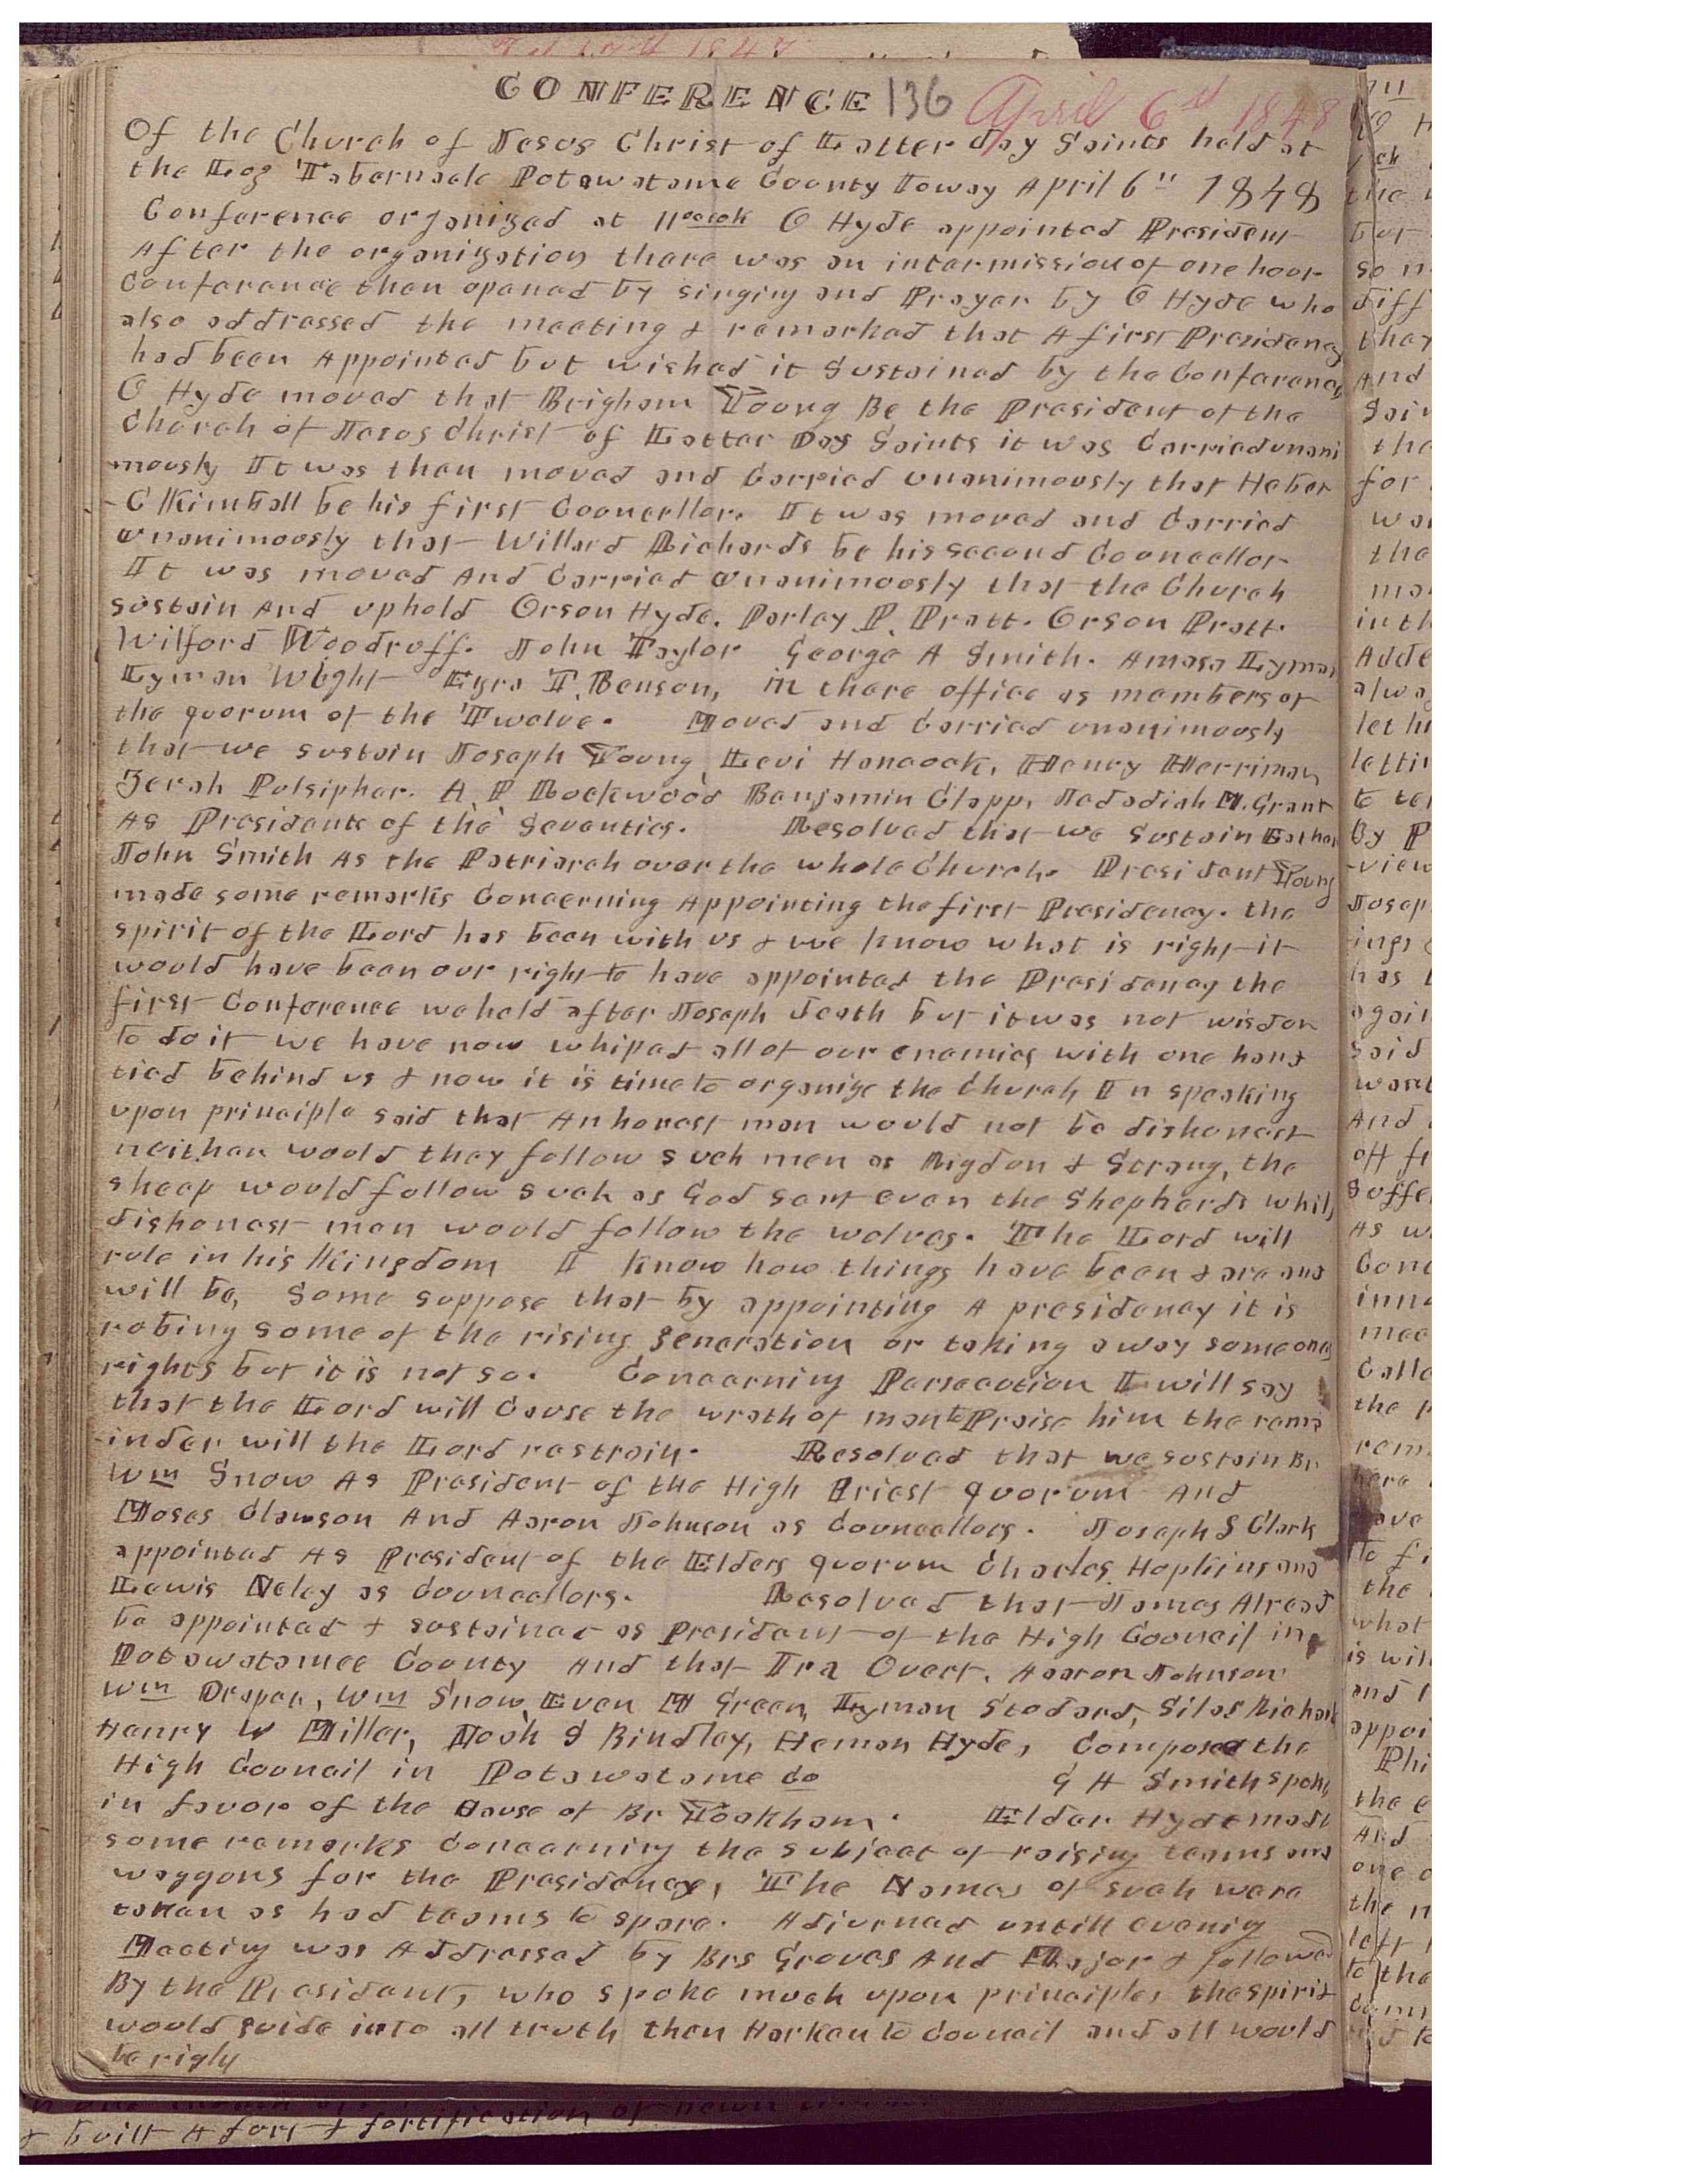 CONFERENCE 136 April 6th 1848
Of the Church of Jesus Christ of Latter day Saints held at
the Log Tabernacle Potawatame County Ioway April 6" 1848
Conference organized at 11 oclok O Hyde appointed President
After the organization there was an intermission of one hour
Conference then opened by singing and Prayer by O Hyde who
also addressed the meeting & remarked that A first Presidency
had been Appointed but wished it Sustained by the Conferance
O Hyde moved that Brigham Young Be the President of the
Church of Jesus Christ of Latter Day Saints it was Carried unani
mously It was then moved and Carried unanimously that Heber
-C Kimball be his first Councellor. It was moved and Carried
unanimously that Willard Richards be his second Councellor
It was moved And Carried unanimously that the Church
sustain And uphold Orson Hyde. Parley P. Pratt. Orson Pratt.
Wilford Woodruff. John Taylor George A Smith. Amasa Lyman
Lyman Wight Ezra T. Benson, in there office as members of
the quorum of the Twelve. Moved and Carried unanimously
that we sustain Joseph Young, Levi Hancock, Henry Herriman,
Zerah Pulsipher. A. P Rockwood Benjamin Clapp, Jedadiah M. Grant
As Presidents of the Seventies. Resolved that we Sustain Father
John Smith As the Patriarch over the whole Church. President Young
made some remarks Concerning Appointing the first Presidency. the
spirit of the Lord has been with us & we know what is right it
would have been our right to have appointed the Presidency the
first Conference we held after Joseph death but it was not wisdom
to do it we have now whiped all of our enemies with one hand
tied behind us & now it is time to organize the Church In speaking
upon principle said that An honest man would not be dishonest
neither would they follow such men as Rigdon & Strang, the
sheep would follow such as God sent even the Shepherds whils
dishonest men would follow the wolves. The Lord will
rule in his Kingdom I know how things have been & are and
will be, Some suppose that by appointing A presidency it is
robing some of the rising generation or taking away someones
rights but it is not so. Concerning Persecution I will say
that the Lord will Cause the wrath of man to Praise him the rema
-inder will the Lord restrain. Resolved that we sustain Br
Wm Snow As President of the High Priest quorum And
Moses Clawson And Aaron Johnson as Councellors. Joseph S Clark
appointed As President of the Elders quorum Charles Hopkins and
Lewis Neley as Councellors. Resolved that James Alread
be appointed & sustained as President of the High Council in
Potawatamee County And that Ira Overt. Aaaron Johnson
Wm Draper, Wm Snow, Even M Green, Lyman Stodard, Silas Richards
Henry W Miller, Noah S Bindley, Heman Hyde, Compose the
High Council in Potawatame Co G A Smith spoke
in favor of the Cause of Br Tookham. Elder Hyde made
some remarks Concerning the subject of raising teams and
waggons for the Presidency, The Names of such were
taken as had teams to spare. Adjurned untill evenig
Meeting was Addressed by Brs Groves And Major & followed
By the President, who spoke much upon principle, the spirit
would guide into all truth then Harken to Council and all would
be right
& built A fort & fortification of